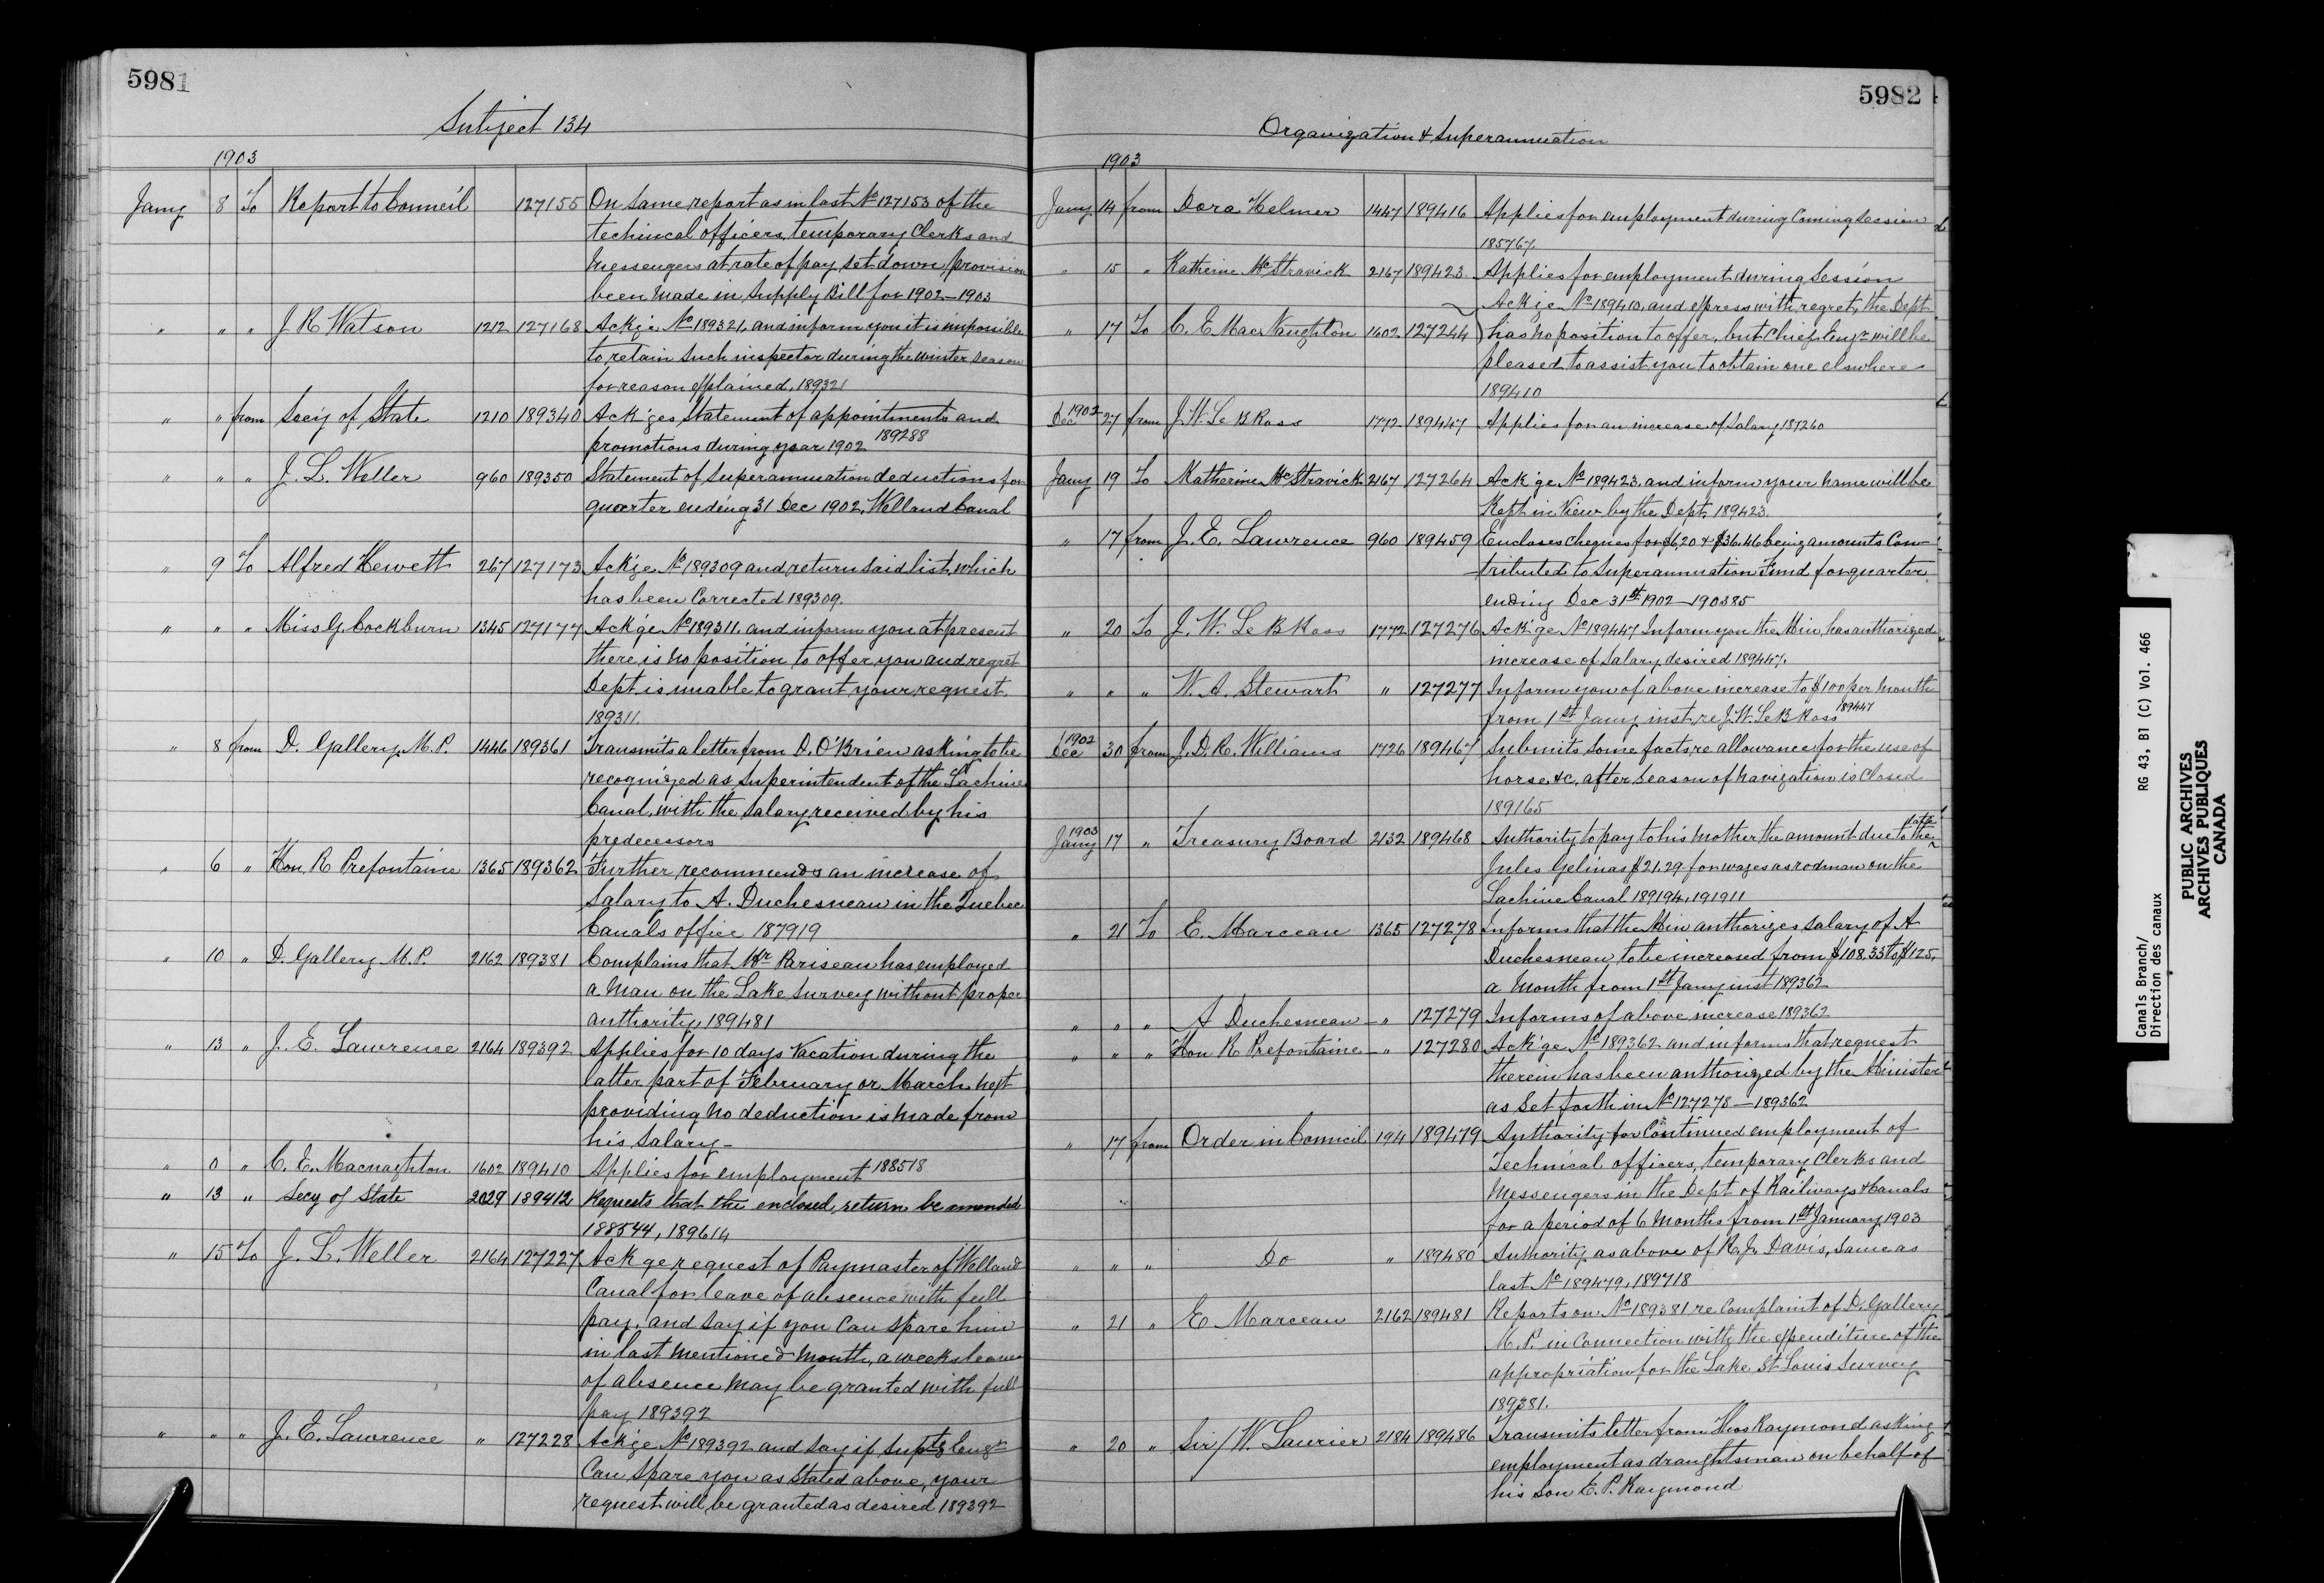 5981
Subject 134
1903
Jany 8 To Report to Council 127155 On same report as in last No 127153 of the
techincal officers, temporary Clerks and
Messengers at rate of pay set down provision
been made in Supply Bill for 1902-1903
" " " J R Watson 1212 127168 Ackge No 189321, and inform you it is impossible
to retain such inspector during the winter season
for reason explained, 189321
" " from Secy of State 1210 189340 Ack'ges Statement of appointments and
promotions during year 1902 189288
" " " J. L. Weller 960 189350 Statement of Superannuation deductions for
quarter ending 31 Dec 1902, Welland Canal
" 9 To Alfred Hewett 267 127173 Ack'ge No 189309 and return said list, which
has been corrected 189309.
" " " Miss G. Cockburn 1345 127177 Ack'ge No 189311, and inform you at present
there is no position to offer you and regret
Dept is unable to grant your request.
189311.
" 8 from D. Gallery, M.P. 1446 189361 Transmits a letter from D. O'Brien asking to be
recognized as Superintendent of the Lachine
Canal, with the salary received by his
predecessors
" 6 " Hon. R Prefontaine 1365 189362 Further recommends an increase of
Salary to A. Duchesneau in the Quebec
Canals office 187919
" 10 " D. Gallery M.P. 2162 189381 Complains that Mr Pariseau has employed
a man on the Lake Survey without proper
authority, 189481
" 13 " J. E. Lawrence 2164 189392 Applies for 10 days vacation during the
latter part of February or March next
providing no deduction is made from
his salary-
" 0 " C. E. Macnaghton 1602 189410 Applies for employment 188518
" 13 " Secy of State 2029 189412 Requests that the enclosed return be amended
188544, 189614
" 15 To J. L. Weller 2164 127227 Ack'ge request of Paymaster of Welland
Canal for leave of absence with full
pay, and say if you can spare him
in last mentioned month, a weeks leave
of absence may be granted with full
pay 189392
" " " J. E. Lawrence " 127228 Ack'ge No 189392 and say if Supt'g Engr
can spare you as stated above, your
request will be granted as desired 189392
5982
Organization & Superannuation
1903
Jany 14 from Dora Helmer 1447 189416 Applies for employment during Coming Session
185767.
" 15 " Katherine McStravick 2167 189423 Applies for employment during Session
Ack'ge No 189410, and express with regret, the Dept.
" 17 To C. E MacNaughton 1602 127244 has no position to offer, but Chief Engr will be
pleased to assist you to obtain one elswhere
189410
1902
Dec 27 from J. W. Le B Ross 1772 189447 Applies for an increase of Salary 187260
Jany 19 To Katherine McStravick 2167 127264 Ack'ge No 189423, and inform your name will be
Kept in View by the Dept. 189423.
" 17 from J. E. Lawrence 960 189459 Encloses cheques for $6,20 & $36.46 being amounts Con-
tributed to Superannuation Fund for quarter
ending Dec 31st 1902-190385
" 20 To J. W. Le B Ross 1772 127276 Ack'ge No 189447 Inform you the Min. has authorized
increase of Salary desired 189447.
" " " W. A. Stewart " 127277 Inform you of above increase to $100 per month
from 1st Jany inst, re J. W. Le B Ross 189447
1902
Dec 30 from J. D. R. Williams 1726 189467 Submits some facts re allowance for the use of
horse &c, after season of navigation is closed
189165
1903
Jany 17 " Treasury Board 2132 189468 Authority to pay to his mother the amount due to the late
Jules Gelinas $21.29 for wages as rodman on the
Lachine Canal 189194, 191911
" 21 To E. Marceau 1365 127278 Informs that the Min authorizes salary of A
Duchesneau to be increased from $108.33 to $125.
a month from 1st Jany inst 189362
" " " A Duchesneau " 127279 Informs of above increase 189362
" " " Hon R Prefontaine " 127280 Ack'ge No 189362 and informs that request
therein has been authorized by the Minister
as set forth in No 127278-189362
" 17 from Order in Council 194 189479 Authority for Continued employment of
Technical officers, temporary Clerks and
Messengers in the Dept of Railways & Canals
for a period of 6 months from 1st January 1903
" " " Do " 189480 Authority as above of R. J. Davis, same as
last No 189479, 189718
" 21 " E Marceau 2162 189481 Reports on No 189381 re Complaint of D. Gallery
M.P. in connection with the expenditure of the
appropriation for the Lake St Louis Survey
189381.
" 20 " Sir W. Laurier 2184 189486 Transmits letter from Thos Raymond asking
employment as draughtsman on behalf of
his son E. P. Raymond
Canals Branch/
Direction des canaux
RG 43, B1 (C) Vol. 466
PUBLIC ARCHIVES
ARCHIVES PUBLIQUES
CANADA